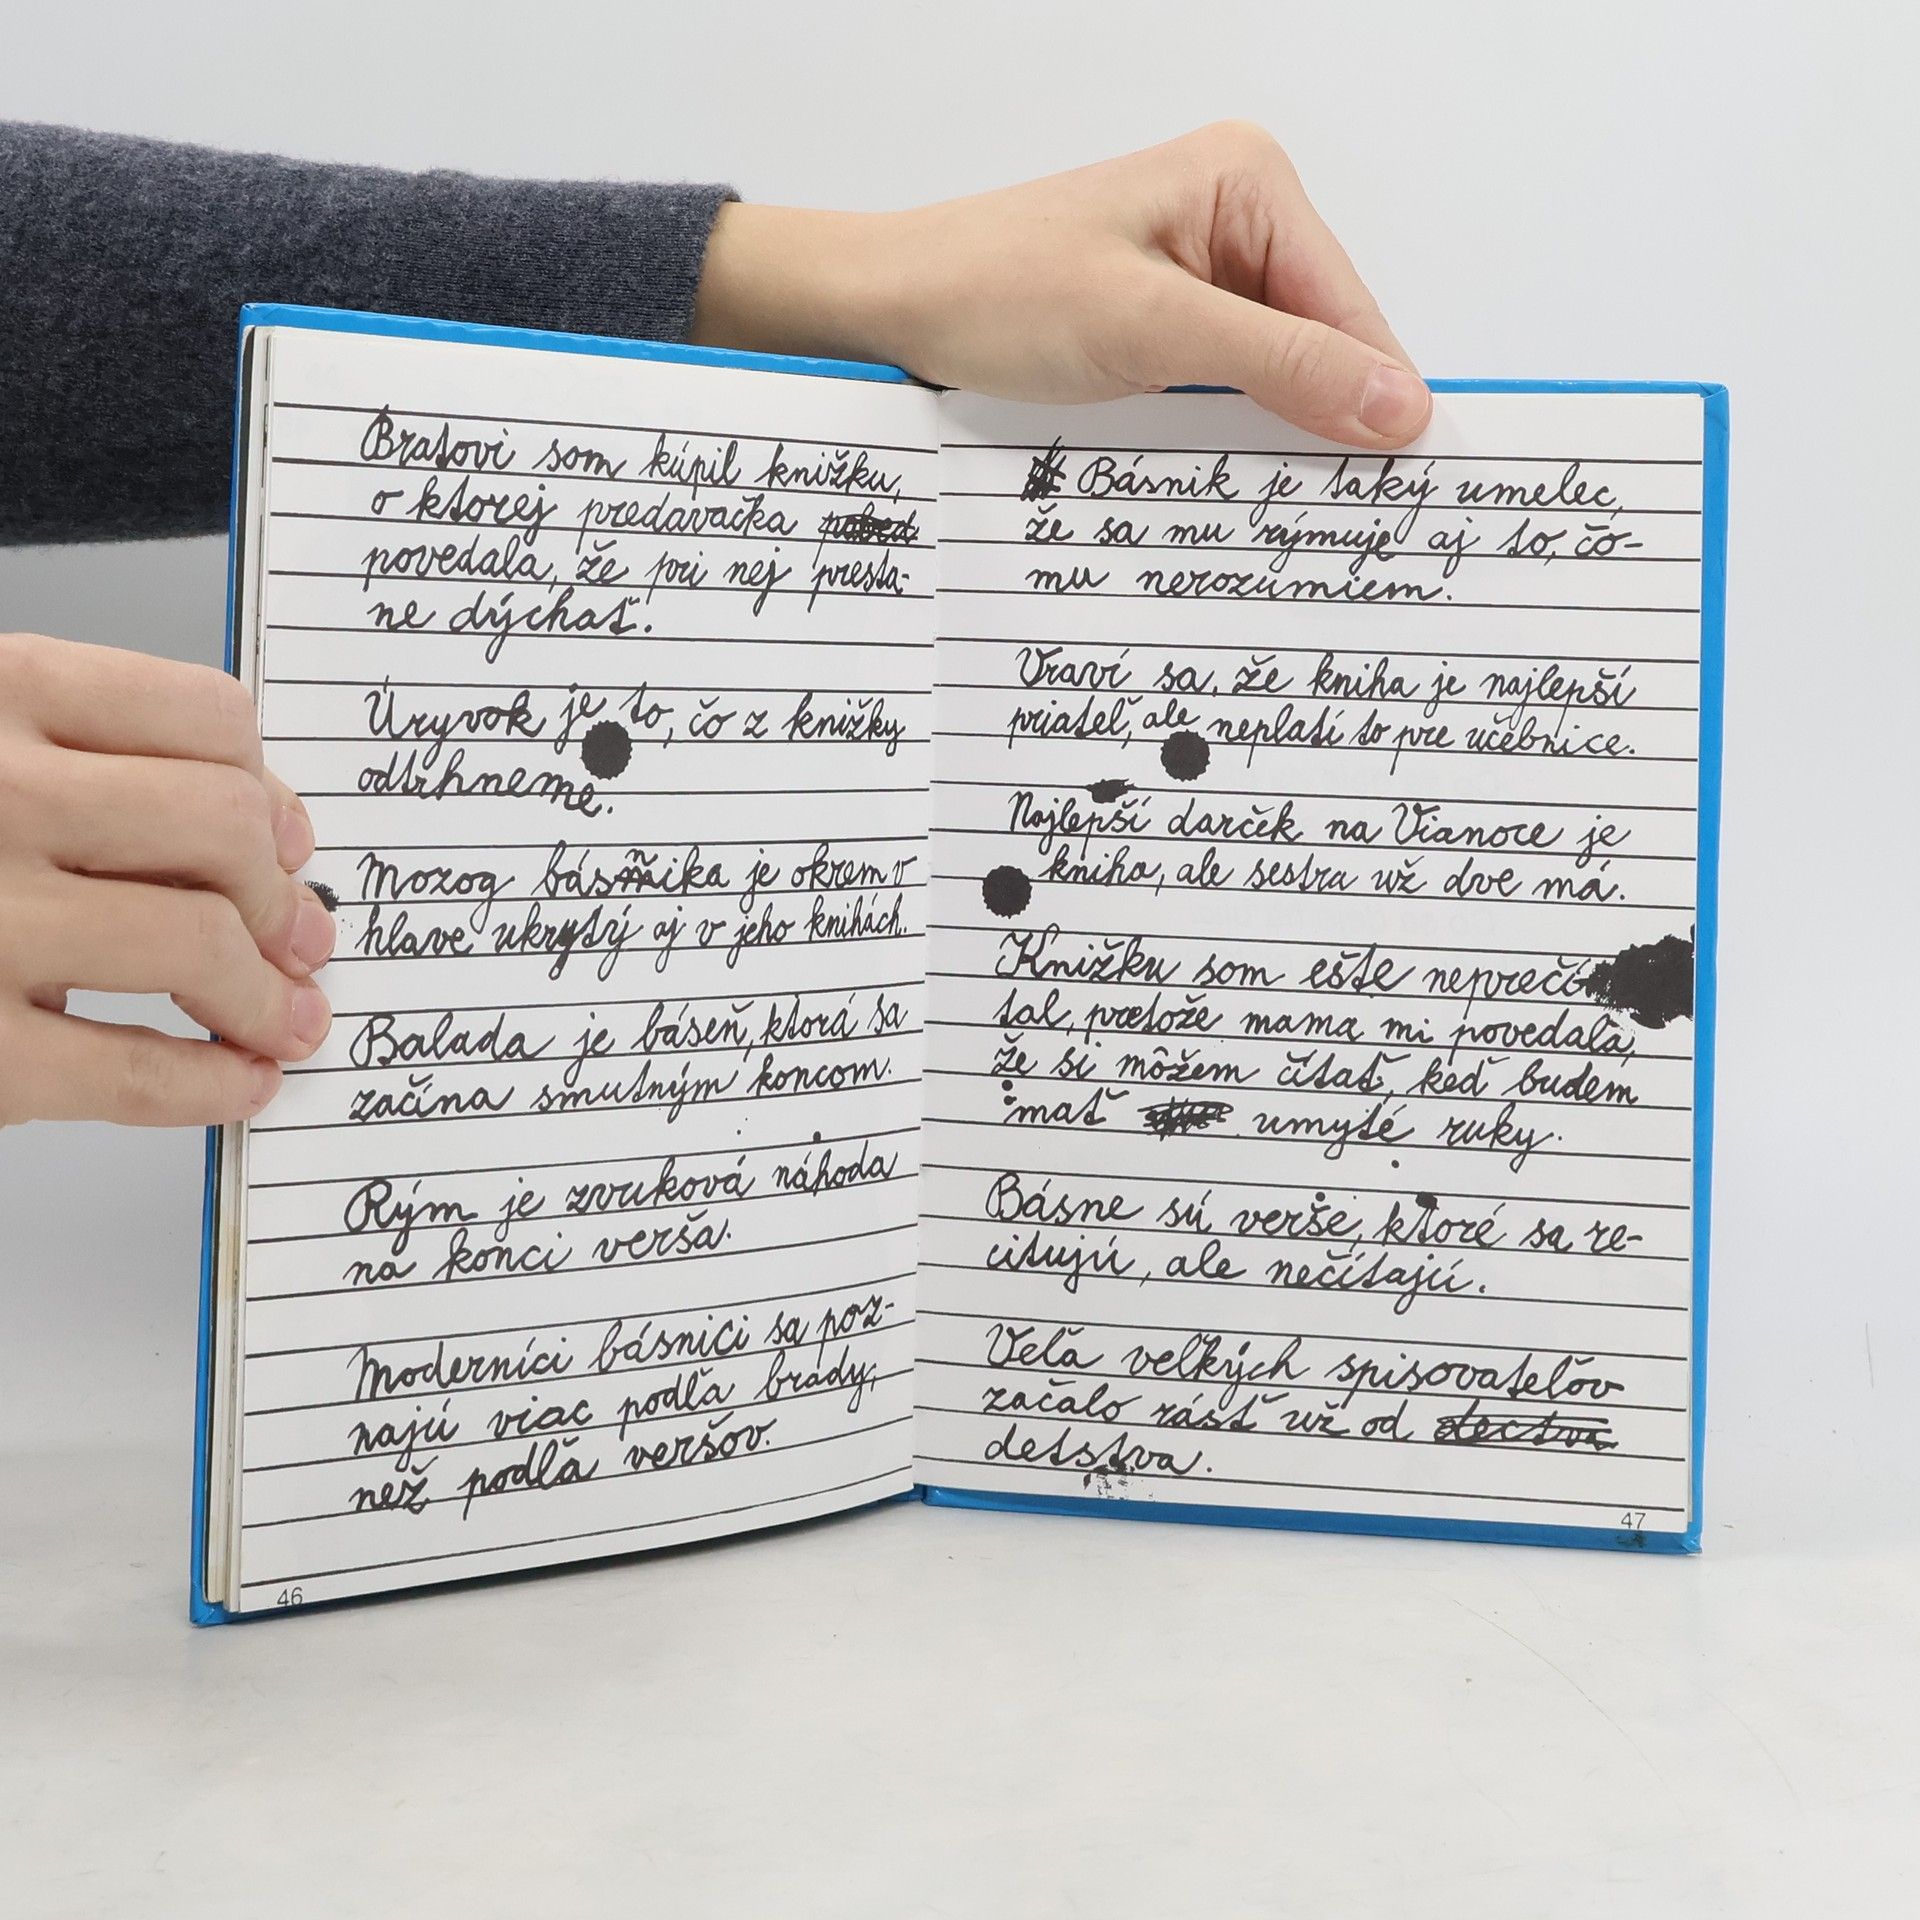 Bratovi som kúpil knižku,
o ktorej predavačka
povedala, že pri nej presta-
ne dýchať.
Úryvok je to, čo z knižky
odtrhneme.
Mozog básnika je okrem v
hlave ukrytý aj v jeho knihách.
Balada je báseň, ktorá sa
začína smutným koncom.
Rým je zvuková náhoda
na konci verša.
Moderníci básnici sa poz-
najú viac podľa brady,
než podľa veršov.
46
Básnik je taký umelec,
že sa mu rýmuje aj to, čo-
mu nerozumiem.
Vraví sa, že kniha je najlepší
priateľ, ale neplatí to pre učebnice.
Najlepší darček na Vianoce je
kniha, ale sestra už dve má.
Knižku som ešte neprečí
tal, pretože mama mi povedala,
že si môžem čítať, keď budem
mať umyté ruky.
Básne sú verše, ktoré sa re-
citujú, ale nečítajú.
Veľa veľkých spisovateľov
začalo rásť už od dectva
detstva.
47